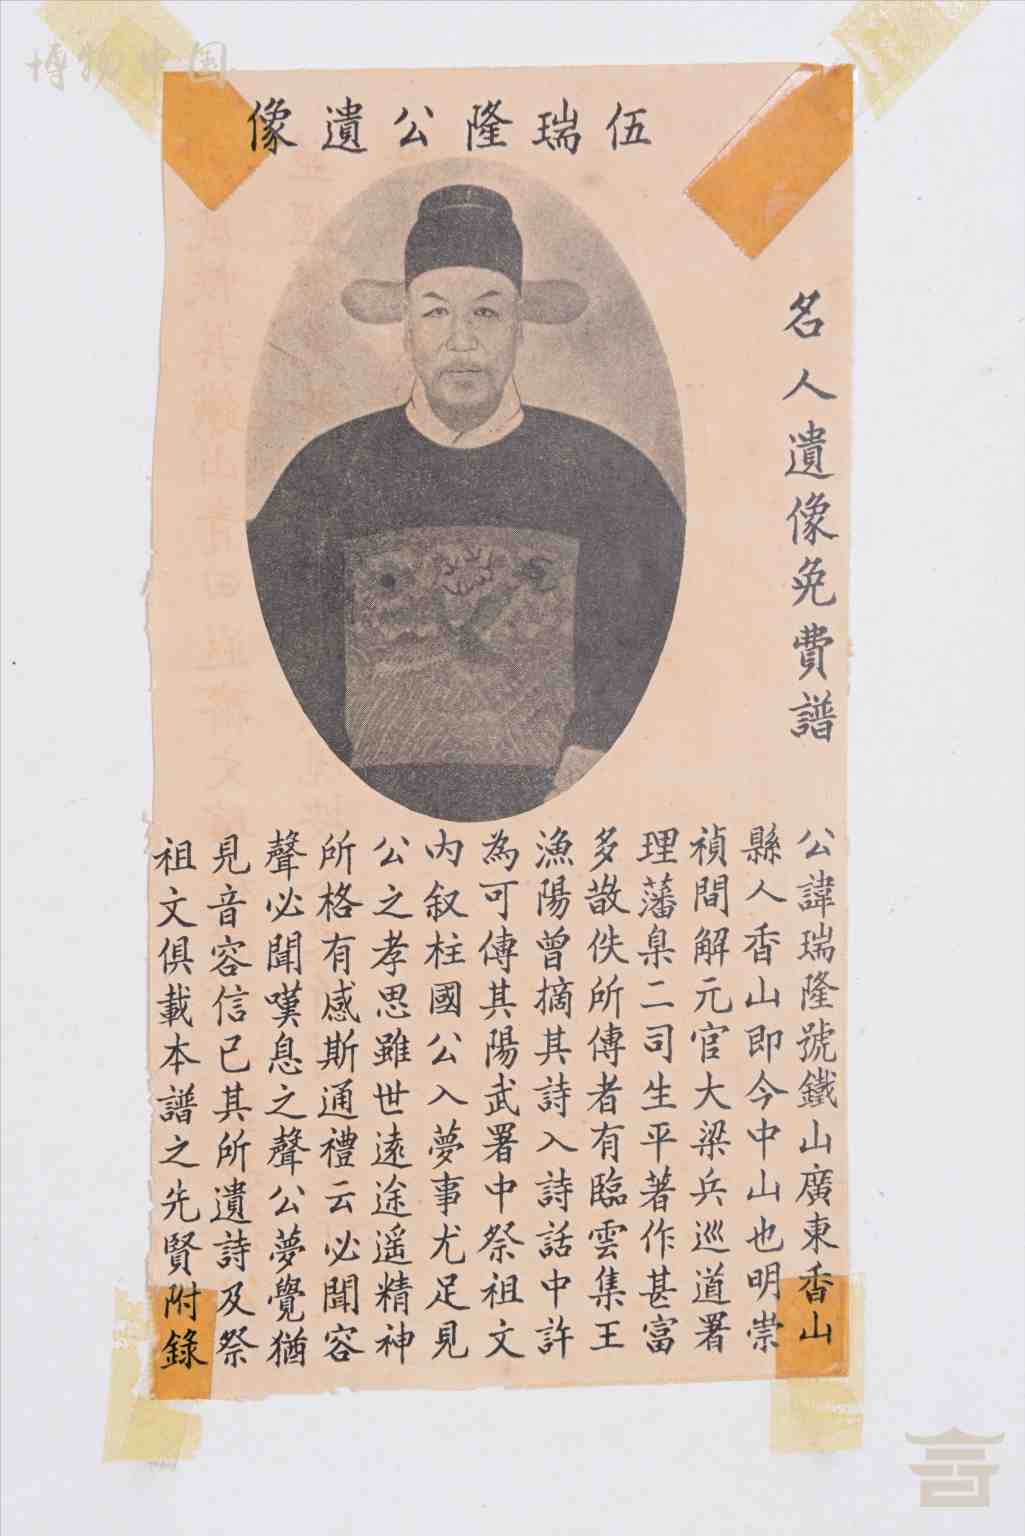 博物中国
伍瑞隆公遺像
名人遺像免費譜
公諱瑞隆號鐵山廣東香山
縣人香山即今中山也明崇
禎間解元官大梁兵巡道署
理藩臬二司生平著作甚富
多散佚所傳者有臨雲集王
漁陽曾摘其詩入詩話中許
為可傳其陽武署中祭祖文
內叙柱國公入夢事尤足見
公之孝思雖世遠途遥精神
所格有感斯通禮云必聞容
聲必聞嘆息之聲公夢覺猶
見音容信已其所遺詩及祭
祖文俱載本譜之先賢附錄